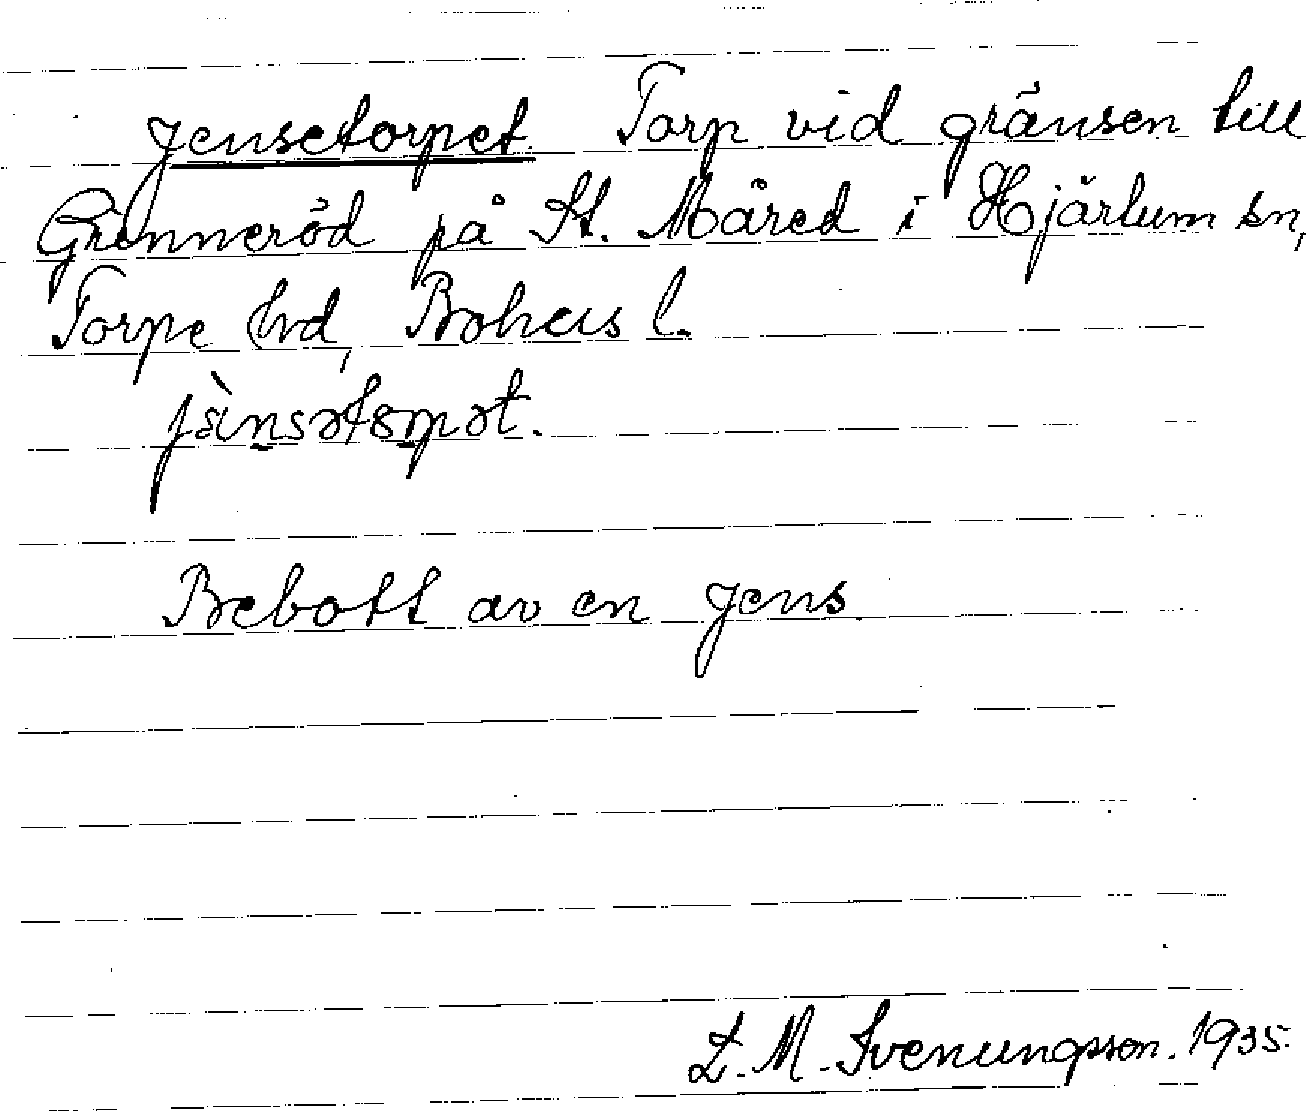 Jensetorpet Torp vid gränsen till
Grinneröd på St. Måred i Hjärtum sn,
Torpe hd, Bohus l.
Bebott av en Jens
L. M. Svenungsson. 1935.